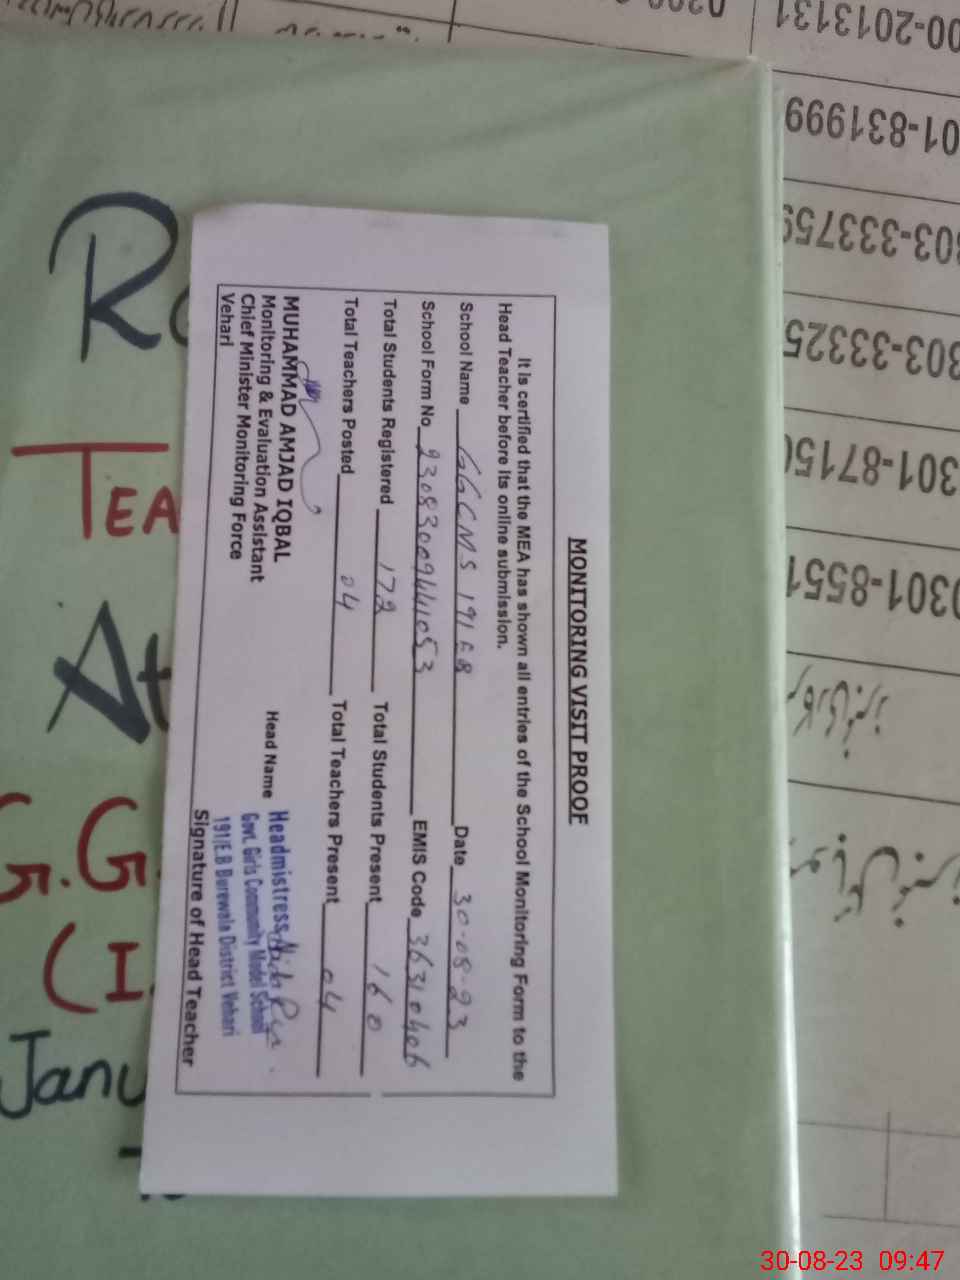 MONITORING VISIT PROOF
It is certified that the MEA has shown all entries of the School Monitoring Form to the
Head Teacher before its online submission.
School Name GGCMS 191 EB Date 30-08-23
School Form No 23083009441053 EMIS Code 36310406
Total Students Registered 172 Total Students Present 160
Total Teachers Posted 04 Total Teachers Present 04
MUHAMMAD AMJAD IQBAL
Monitoring & Evaluation Assistant
Chief Minister Monitoring Force
Vehari
Head Name
Headmistress
Govt. Girls Community Model School
191/E.B Burewala District Vehari
Signature of Head Teacher
TEA
G.G.
(I.
Janu
00-2013131
01-831999
303-333759
303-33325
301-8715
0301-8551
30-08-23 09:47